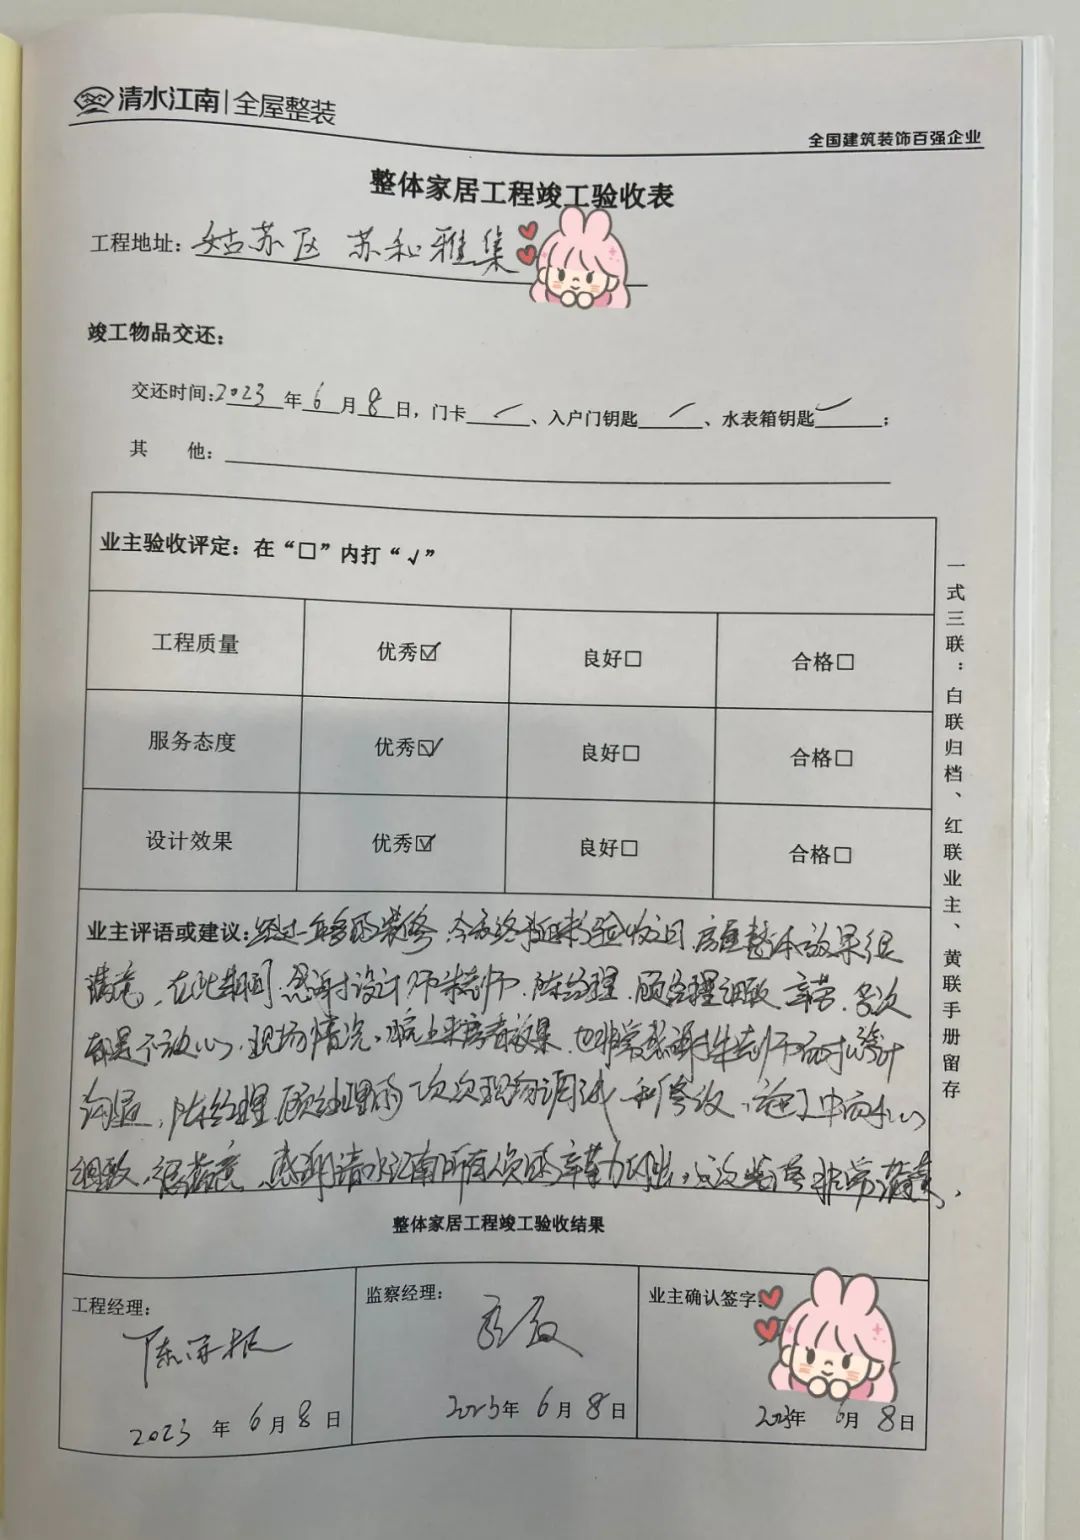 清水江南|全屋整装
全国建筑装饰百强企业
整体家居工程竣工验收表
工程地址：姑苏区 苏和雅集
竣工物品交还：
交还时间:2023年6月8日，门卡✓、入户门钥匙✓、水表箱钥匙✓；
其 他：
业主验收评定：在“□”内打“√”
工程质量 优秀☑ 良好□ 合格□
服务态度 优秀☑ 良好□ 合格□
设计效果 优秀☑ 良好□ 合格□
业主评语或建议：经过一年多的装修，今天终于迎来验收之日，房屋整体效果很
满意，在此期间，感谢设计师 师，陈经理，顾经理细致 辛苦，多次
现场情况，晚上来 看效果，也非常感谢 师 设计
沟通，陈经理，顾经理的一次次现场调试和修改，施工中
细致，很满意，感谢清水江南所有人员的辛勤付出，这次装修非常满意，
整体家居工程竣工验收结果
工程经理：
2023年6月8日
监察经理：
2023年6月8日
业主确认签字：
2023年6月8日
一式三联：白联归档、红联业主、黄联手册留存